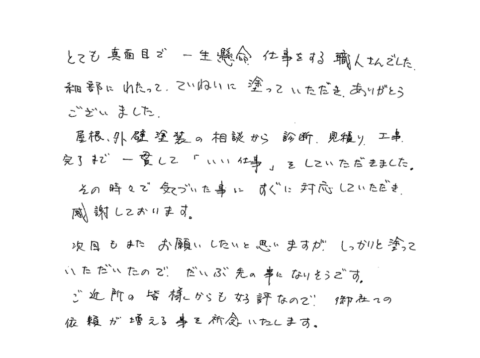 とても真面目で一生懸命仕事をする職人さんでした。
細部にわたって、ていねいに塗っていただき、ありがとう
ございました。
屋根、外壁塗装の相談から診断、見積り、工事
完了まで一貫して「いい仕事」をしていただきました。
その時々で気づいた事にすぐに対応していただき、
感謝しております。
次回もまたお願いしたいと思いますが、しっかりと塗って
いただいたので、だいぶ先の事になりそうです。
ご近所の皆様からも好評なので、御社への
依頼が増える事を祈念いたします。